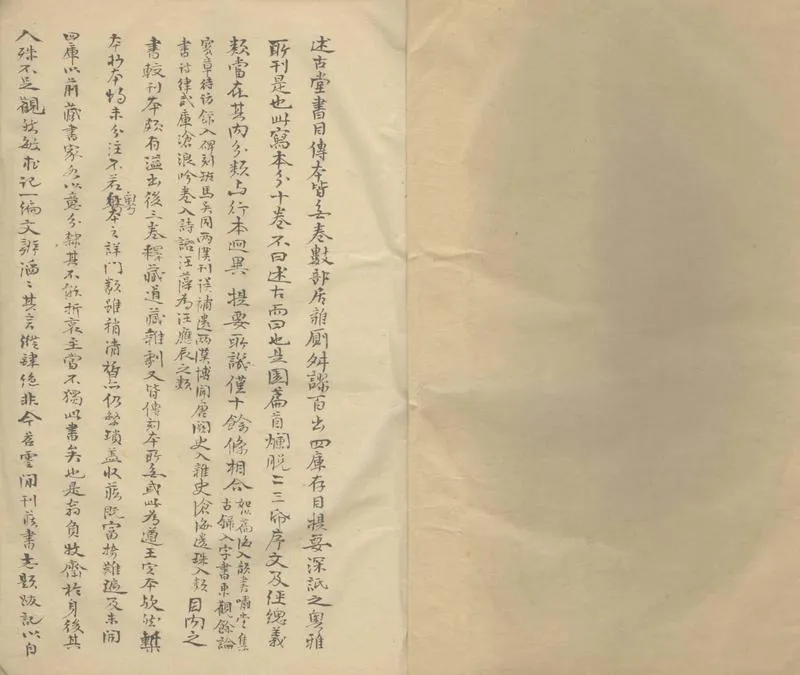 述古堂書目傳本皆無卷數部居雜厠舛謬百出四庫存目提要深詆之奧雅
所刊是也此寫本分十卷不曰述古而曰也是園篇首爛脫二三節序文及經總義
類當在其內分類与行本迥異提要所譏僅十餘條相合如以為海入類書嘯堂集
古錄入字書東觀餘論
寶章待訪錄入碑刻班馬異同兩漢刊誤補遺兩漢博聞唐闕史入雜史滄海遺珠入類
書詩律武庫滄浪吟卷入詩話汪藻為汪應辰之類目內之
書較刊本頗有溢出後三卷釋藏道藏雜劇又皆傳刻本所無或此為遵王定本歟然槧
本抄本均未分注不若粵本之詳門類雖稍清晳亦仍繁瑣蓋收藏既富撿難遍及未開
四庫以前藏書家各以意分隸其不能折衷至當不獨此書矣也是翁負牧齋於身後其
人殊不足觀然敏求記一編文辭灑〻其言縱肆絕非今苕雲間刊藏書志題跋記以自